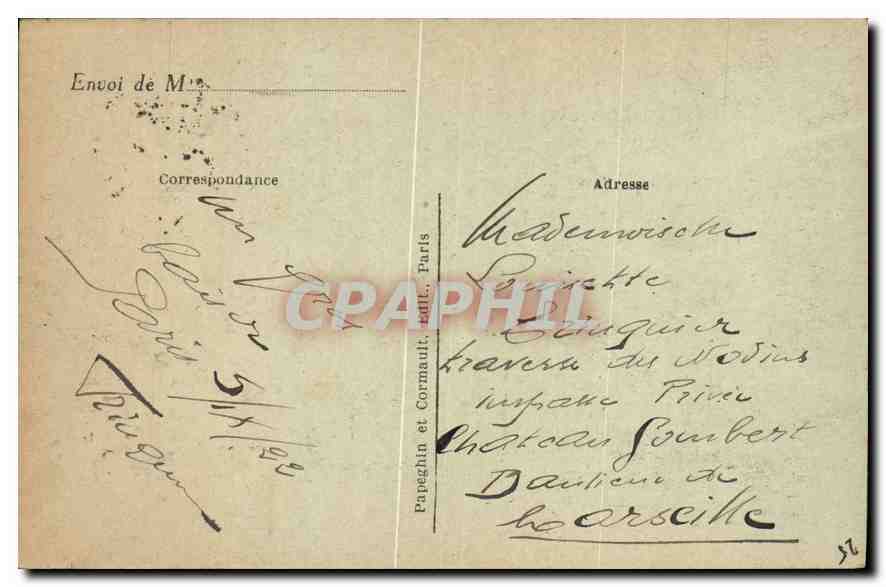 Envoi de M
Correspondance
un gros
baiser
Paris 5/IX/22
Adresse
Mademoiselle
Louisette
Trinquier
traverse des Nodins
impasse Privée
Chateau Gombert
Banlieue de
Marseille
Papeghin et Cormault, Edit., Paris
CPAPHIL
52